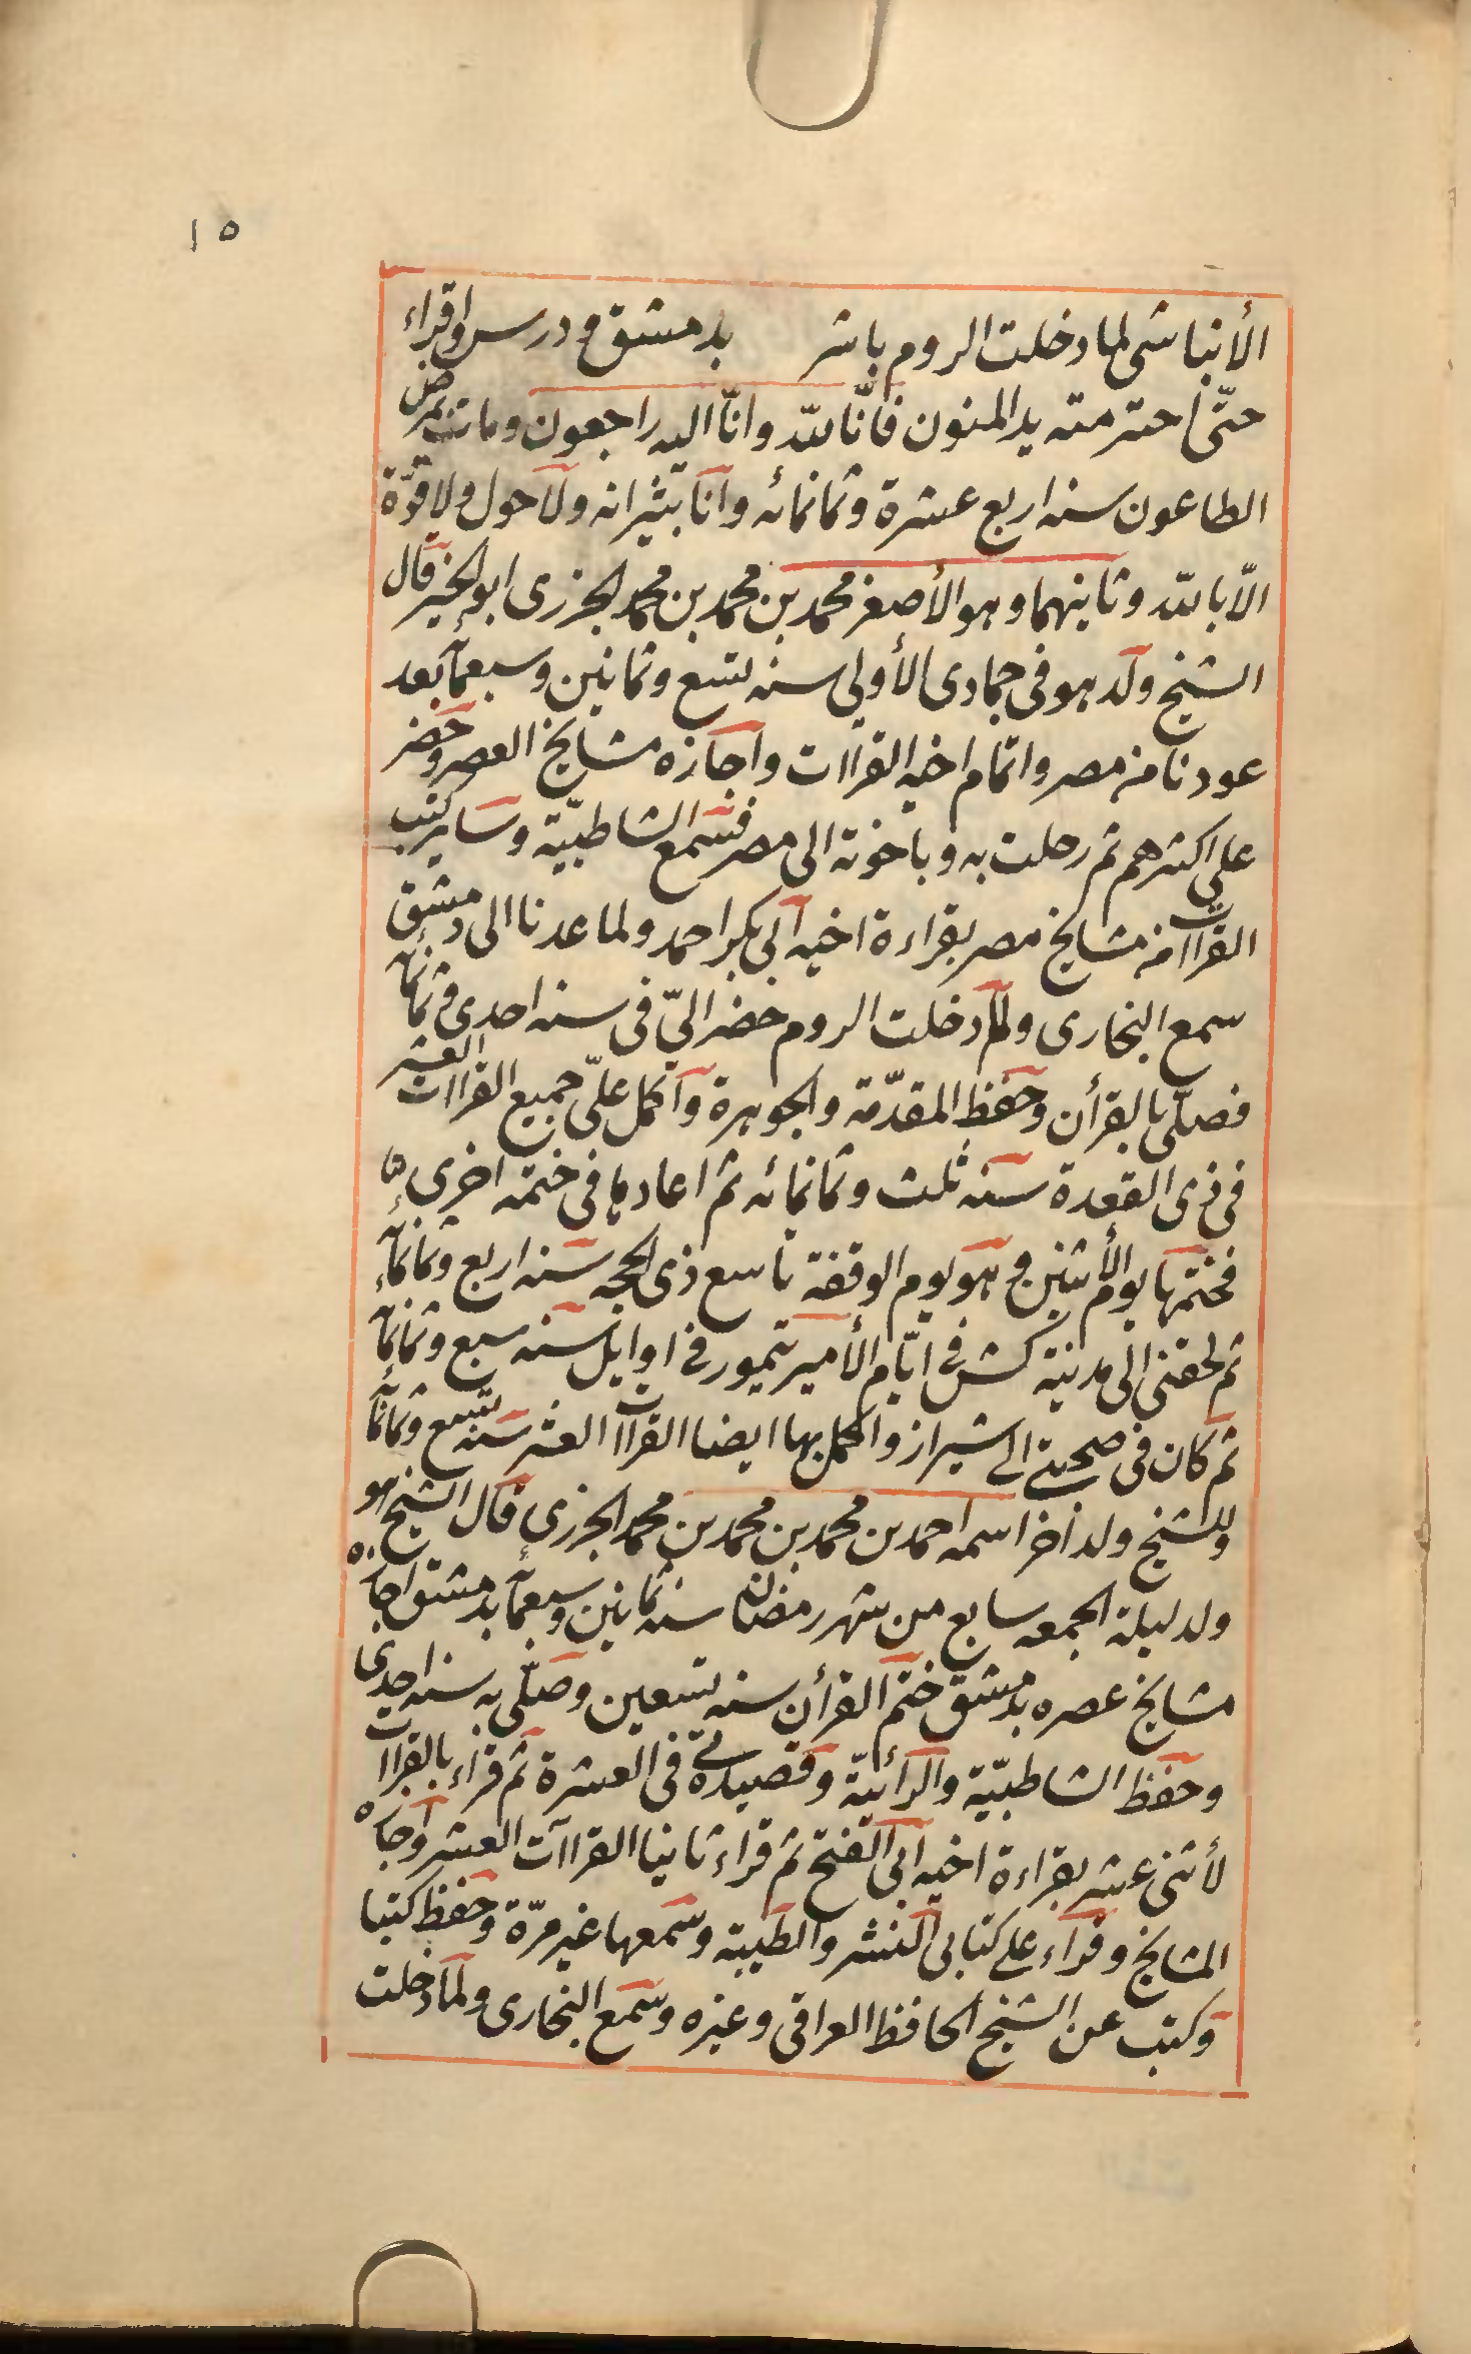 ١٥
الأنباشى لما دخلت الروم باشر بدمشق و درس واقراء
حتّى احترمته يد المنون فانّا لله وانّا اليه راجعون ومات بمرض
الطاعون سنه اربع عشرة وثمانمائه وانا بشيرانه ولا حول ولا قوّة
الّا بالله وثانيهما وهو الأصغر محمد بن محمد بن محمد الجزرى ابو الخير قال
الشيخ ولد هو فى جمادى الأولى سنه تسع وثمانين وسبعمآ بعد
عودنا من مصر واتمام اخيه القراات واجازه مشايخ العصر وحضر
على اكثرهم ثم رحلت به وباخوته الى مصر فسمع الشاطبيّة وساير كتب
القراات من مشايخ مصر بقراءة اخيه ابى بكر احمد ولما عدنا الى دمشق
سمع البخارى ولما دخلت الروم حضر اليّ فى سنه احدى وثمانمآ
فصلّى بالقرأن وحفظ المقدّمة والجوهرة واكمل علىّ جميع القراات العشر
فى ذى القعدة سنه ثلث وثمانمائه ثم اعادها فى ختمه اخرى
فختمها يوم الأثنين وهو يوم الوقفة تاسع ذى الحجه سنه اربع وثمانمآء
ثم لحقنى الى مدينة كش فى ايّام الأمير تيمور فى اوايل سنه سبع وثمانمآ
ثم كان فى صحبتى الى شيراز واكمل بها ايضا القراات العشر سنه تسع وثمانمآ
وللشيخ ولد أخر اسمه احمد بن محمد بن محمد بن محمد الجزرى قال الشيخ هو
ولد ليلة الجمعه سابع من شهر رمضان سنه ثمانين وسبعمآ بدمشق اجازه
مشايخ عصره بدمشق ختم القرأن سنه تسعين وصلّى به سنه احدى
وحفظ الشاطبيّة والرائيّة وقصيدتى فى العشرة ثم قراء بالقراات
لأثنى عشر بقراءة اخيه ابى الفتح ثم قراء ثانيا القراآت العشر واجازه
المشايخ وقراء على كتابى النشر والطيبة وسمعها غير مرّة وحفظ كتبا
وكتب عن الشيخ الحافظ العراقى وغيره وسمع البخارى ولما دخلت